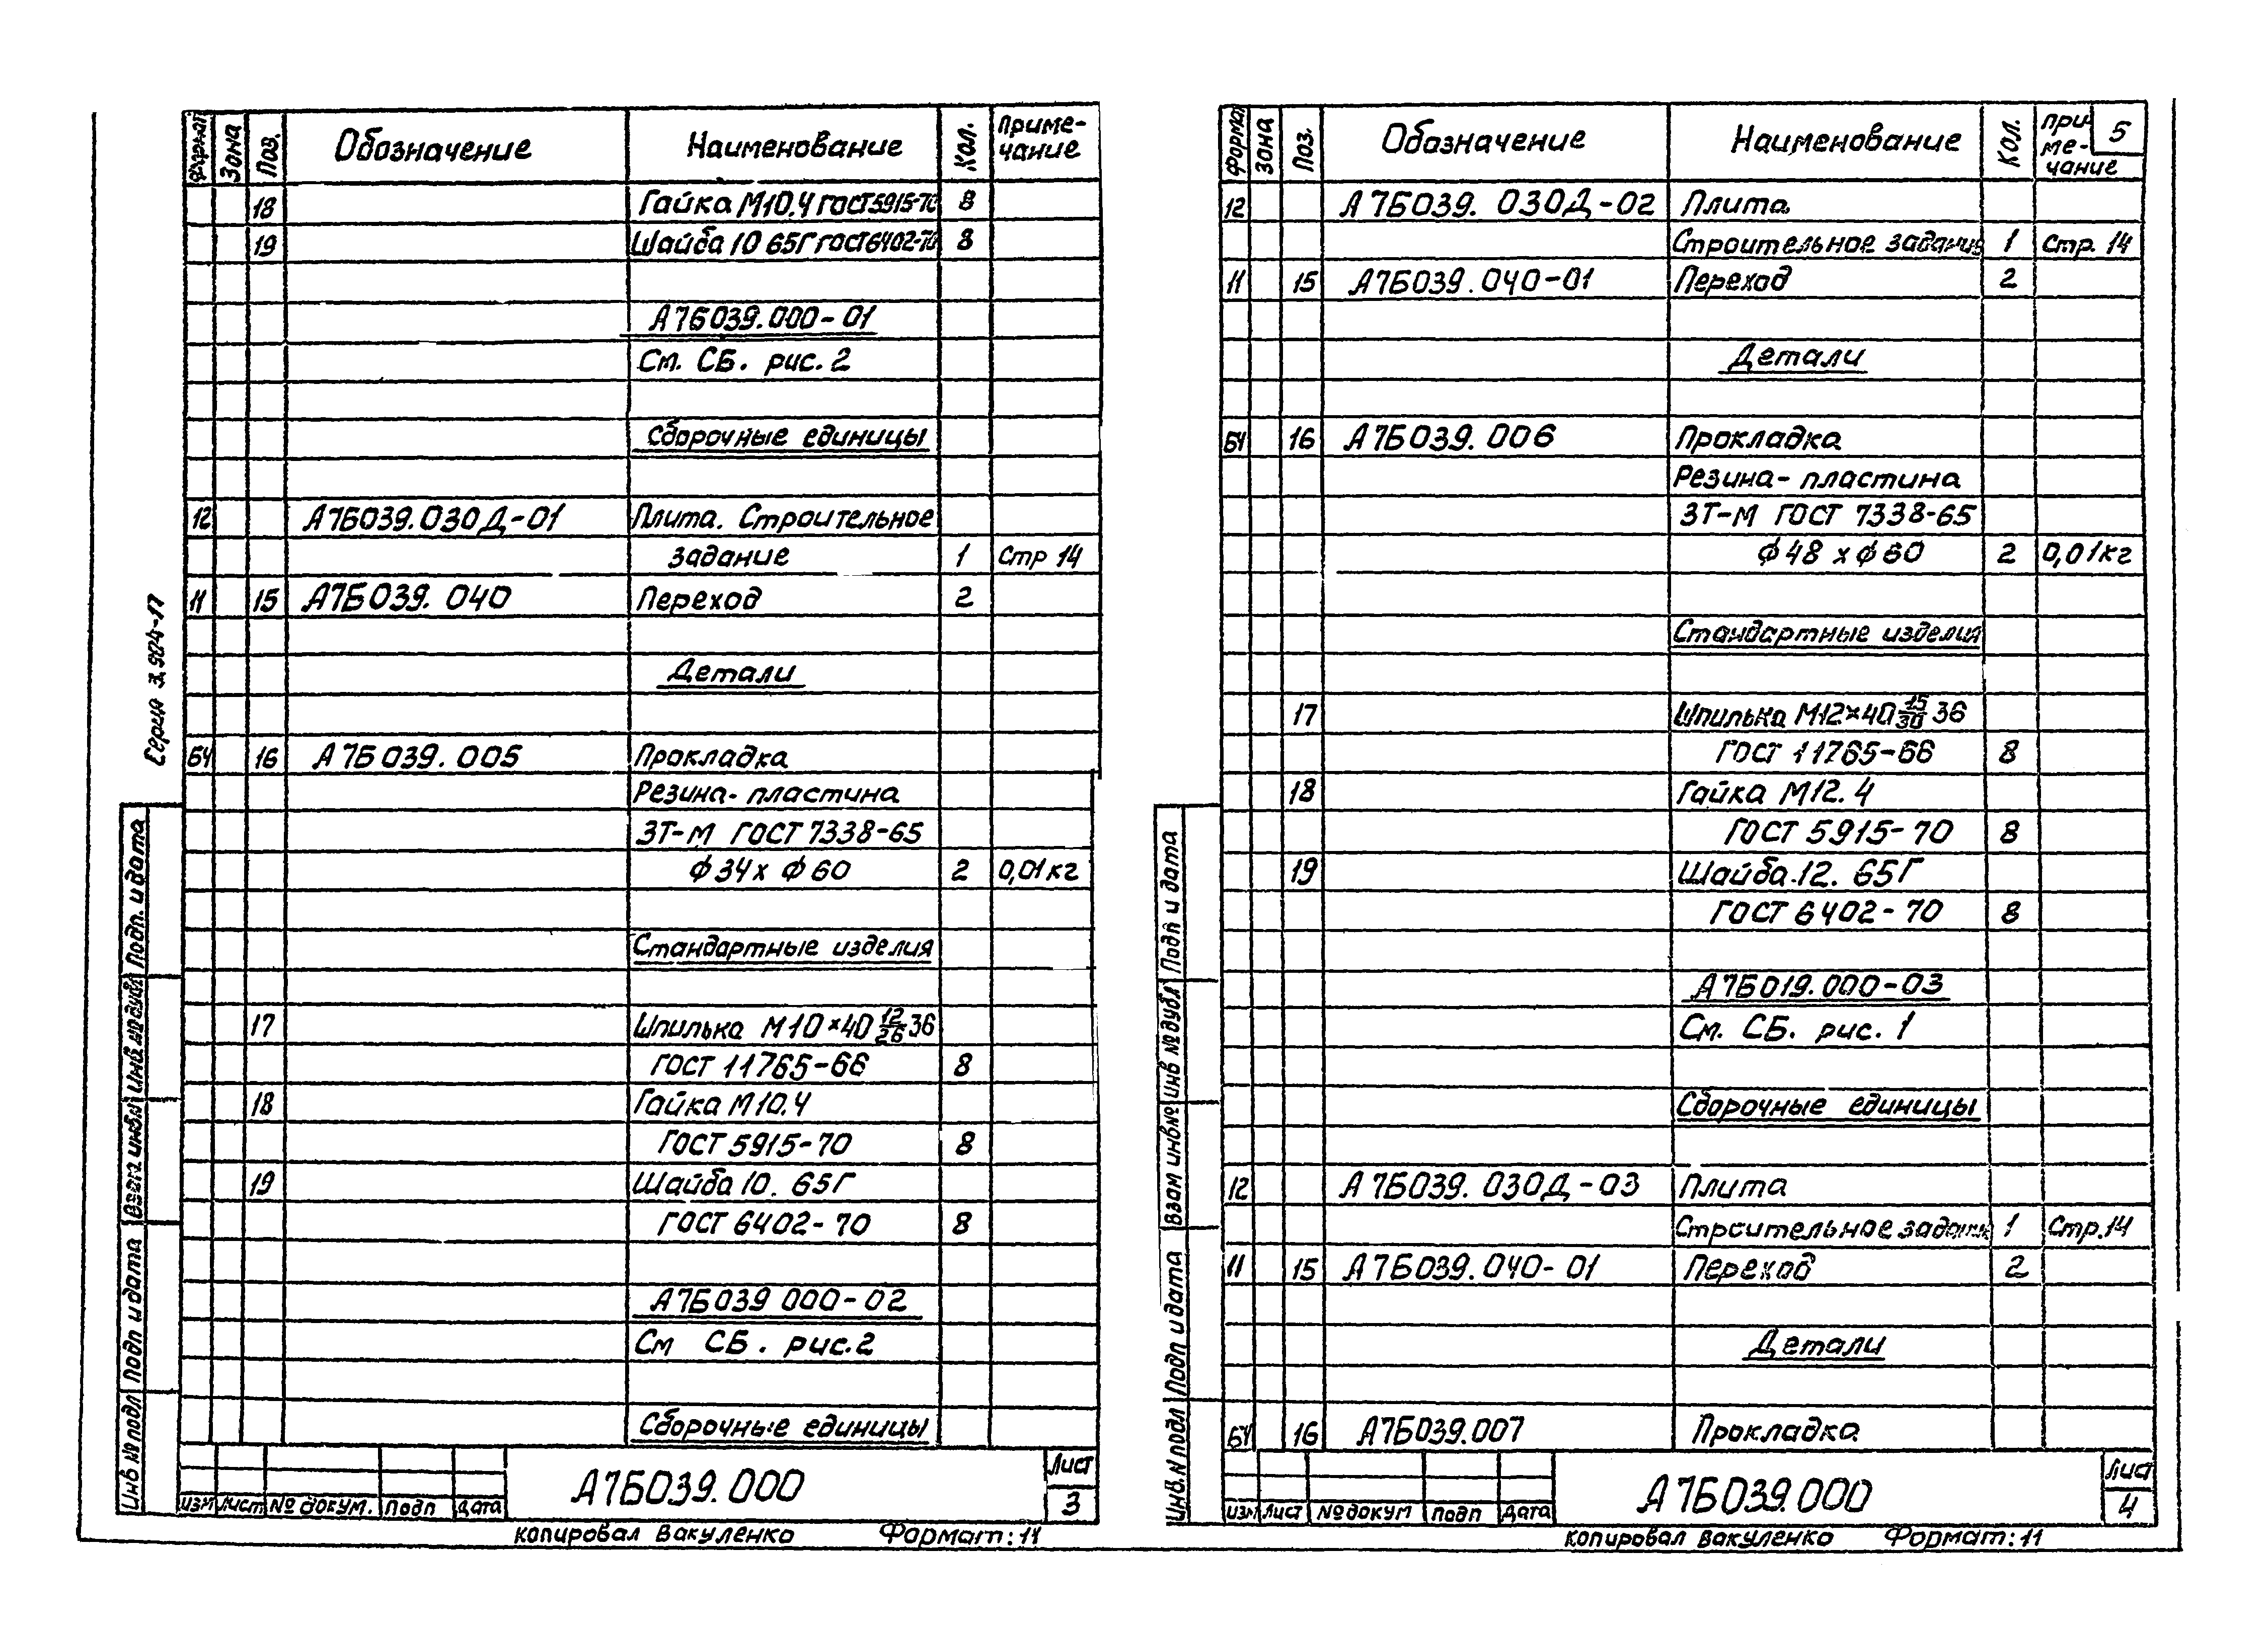 Серия 3.904-17
Формат Зона Поз. Обозначение Наименование Кол. Приме-
чание
18 Гайка М10.4 ГОСТ5915-70 8
19 Шайба 10 65Г ГОСТ6402-70 8
А7Б039.000-01
См. СБ. рис. 2
Сборочные единицы
12 А7Б039.030Д-01 Плита. Строительное
задание 1 Стр 14
11 15 А7Б039.040 Переход 2
Детали
БЧ 16 А7Б039.005 Прокладка
Резина-пластина
3Т-М ГОСТ 7338-65
ф34х ф60 2 0,01кг
Стандартные изделия
17 Шпилька М10×40 12/26 36
ГОСТ 11765-66 8
18 Гайка М10.4
ГОСТ 5915-70 8
19 Шайба 10. 65Г
ГОСТ 6402-70 8
А7Б039 000-02
См СБ. рис.2
Сборочные единицы
Изм Лист № докум. Подп Дата
А7Б039.000
Лист
3
Копировал Вакуленко Формат: 11
Инв № подл Подп и дата Взам инв № Инв № дубл Подп. и дата
5
Формат Зона Поз. Обозначение Наименование Кол. При-
ме-
чание
12 А7Б039.030Д-02 Плита
Строительное задание 1 Стр. 14
11 15 А7Б039.040-01 Переход 2
Детали
БЧ 16 А7Б039.006 Прокладка
Резина-пластина
3Т-М ГОСТ 7338-65
ф48 х ф60 2 0,01кг
Стандартные изделия
17 Шпилька М12×40 15/30 36
ГОСТ 11765-66 8
18 Гайка М12.4
ГОСТ 5915-70 8
19 Шайба.12. 65Г
ГОСТ 6402-70 8
А7Б019.000-03
См. СБ. рис. 1
Сборочные единицы
12 А7Б039.030Д-03 Плита
Строительное задание 1 Стр.14
11 15 А7Б039.040-01 Переход 2
Детали
БЧ 16 А7Б039.007 Прокладка
Изм Лист № докум Подп Дата
А7Б039.000
Лист
4
Копировал Вакуленко Формат: 11
Инв. № подл Подп и дата Взам инв № Инв № дубл Подп и дата